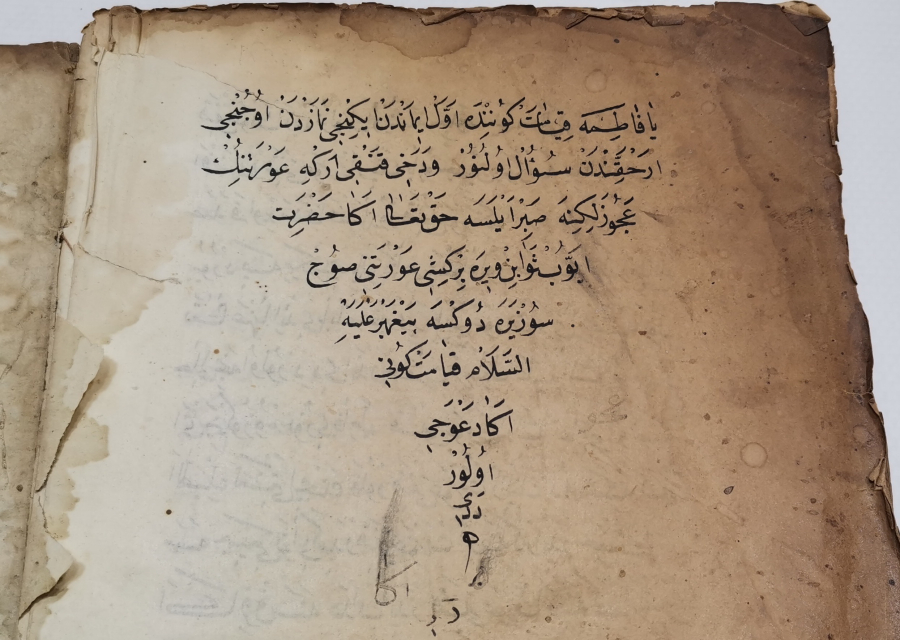 يا فاطمه قيامت كوننده اول ايماندن ايكنجى نمازدن اوچنجى
ار حقندن سؤال اولنور ودخى قنقى اركه عورتنك
عجوزلكنه صبر ايلسه حق تعالى اكا حضرت
ايوب ثوابن ويره بر كشى عورتنى صوچ
سوزيره دوكسه پيغمبر عليه
السلام قيامت كونى
اكا دعوجى
اولور
ددى